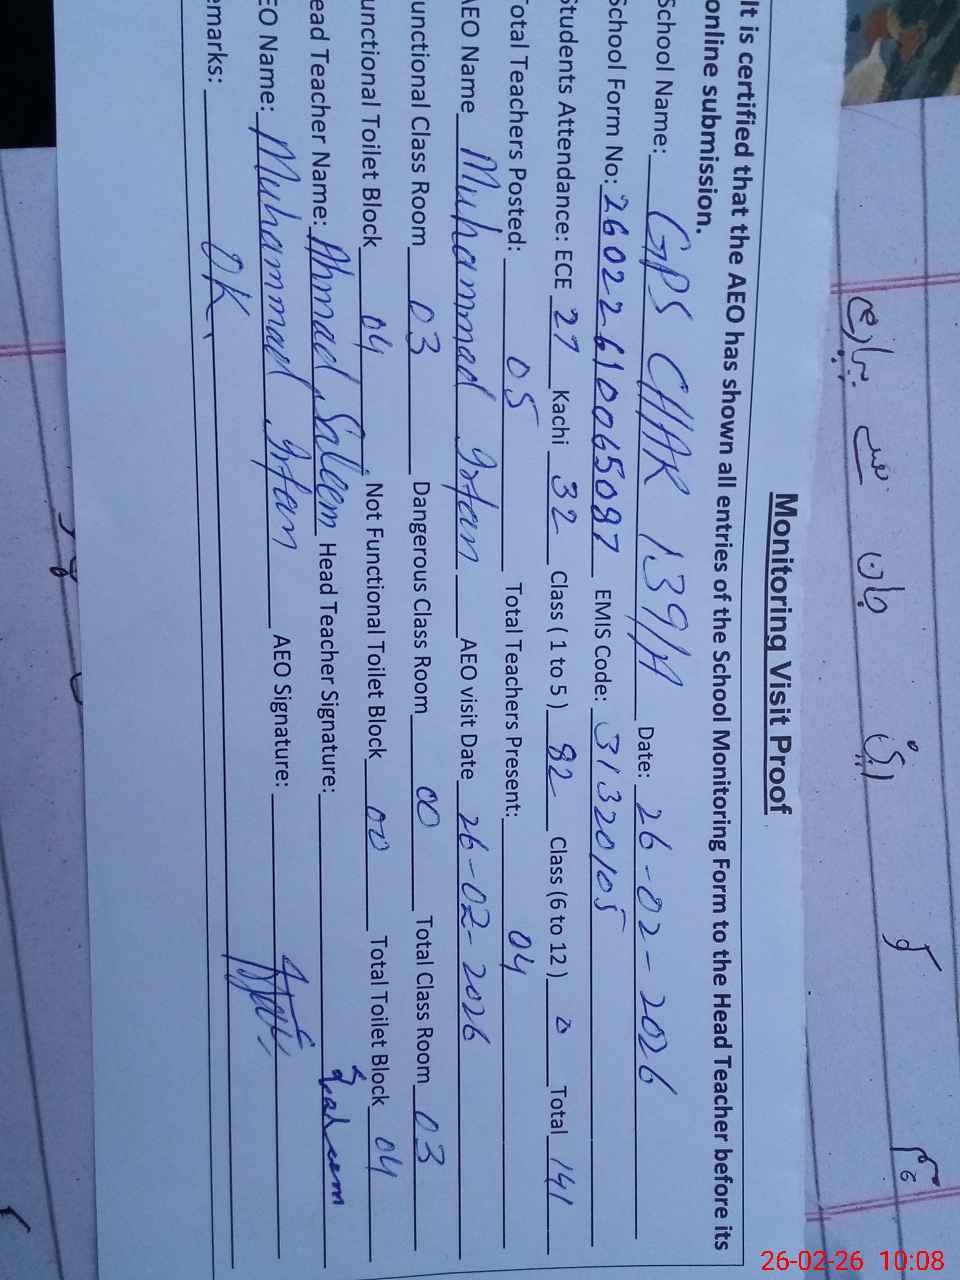 Monitoring Visit Proof
It is certified that the AEO has shown all entries of the School Monitoring Form to the Head Teacher before its
online submission.
School Name: GPS CHAK 139/A Date: 26-02-2026
School Form No: 26022610065087 EMIS Code: 31320105
Students Attendance: ECE 27 Kachi 32 Class ( 1 to 5 ) 82 Class (6 to 12 ) 0 Total 141
Total Teachers Posted: 05 Total Teachers Present: 04
AEO Name Muhammad Irfan AEO visit Date 26-02-2026
unctional Class Room 03 Dangerous Class Room 00 Total Class Room 03
unctional Toilet Block 04 Not Functional Toilet Block 00 Total Toilet Block 04
ead Teacher Name: Ahmad Saleem Head Teacher Signature:
EO Name: Muhammad Irfan AEO Signature:
emarks: OK
26-02-26 10:08